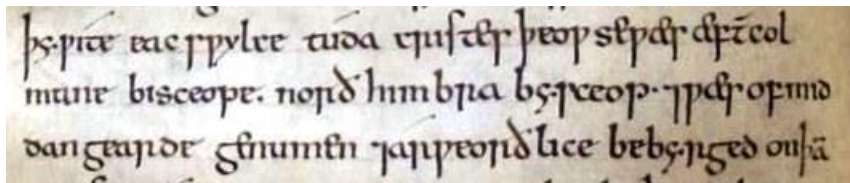 þẏ ƿite eac sƿylce tuda cristes þeoƿ se ƿæs æft̄ col
mane bisceope. norð humbria bẏsceop· ⁊ ƿæs of mid
dangearde genumen ⁊ arƿeorðlice bebẏriged on